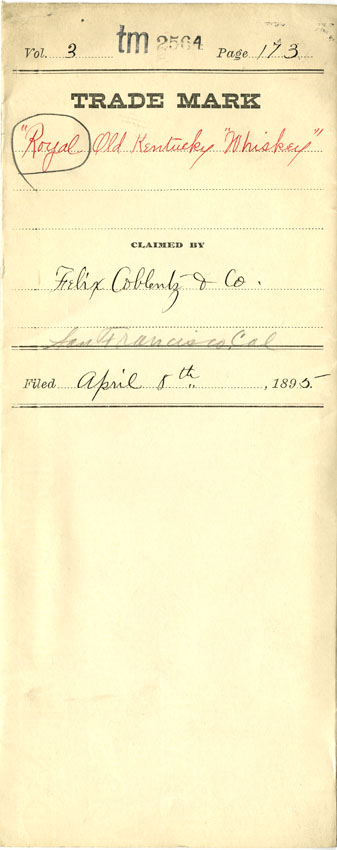 Vol. 3 tm 2564 Page 173
TRADE MARK
"Royal Old Kentucky "Whiskey"
CLAIMED BY
Felix Coblentz & Co.
San Francisco, Cal
Filed April 8th, 1895